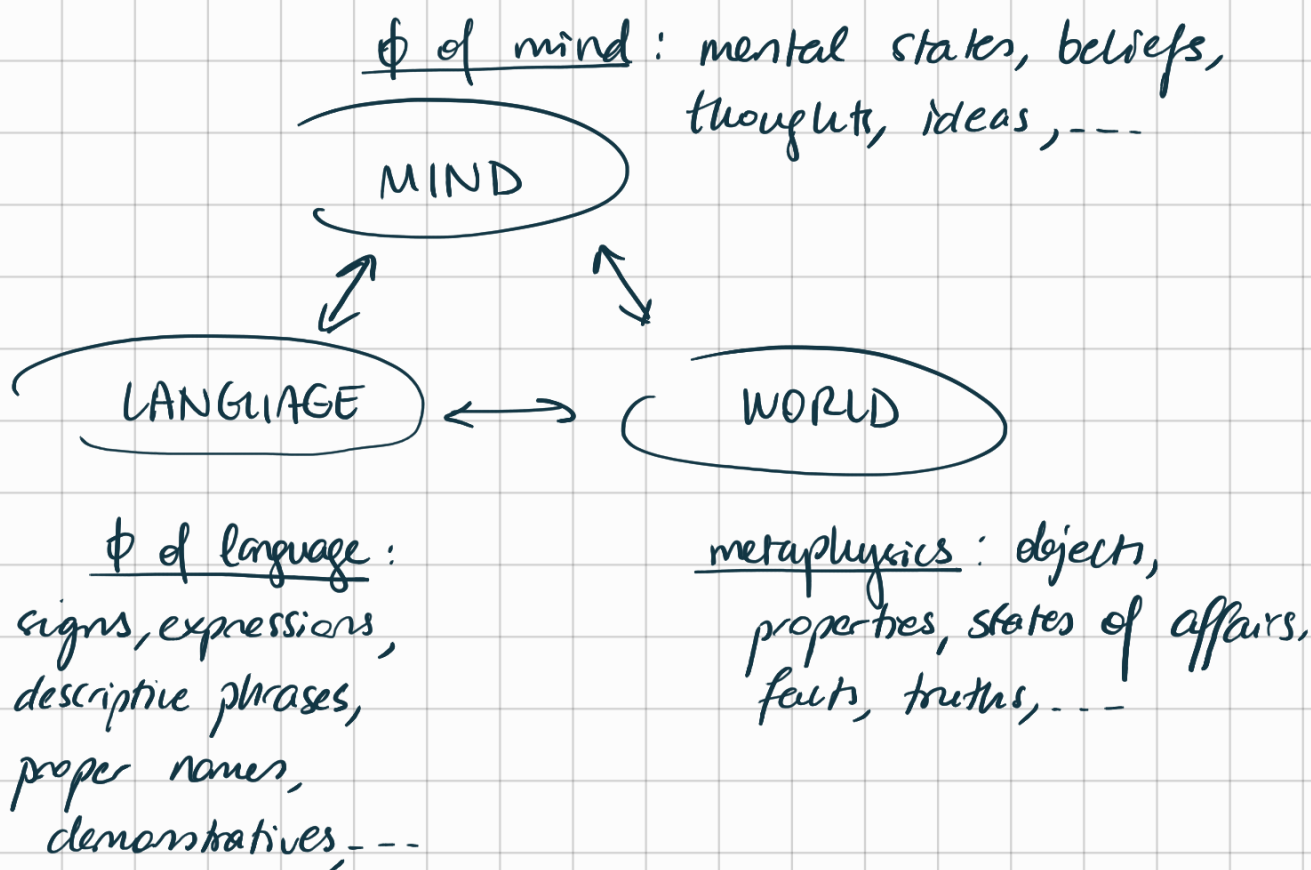 ϕ of mind: mental states, beliefs,
thoughts, ideas,----
MIND
LANGUAGE
WORLD
ϕ of language:
signs, expressions,
descriptive phrases,
proper names,
demonstratives,---
metaphysics: objects,
properties, states of affairs,
facts, truths,----